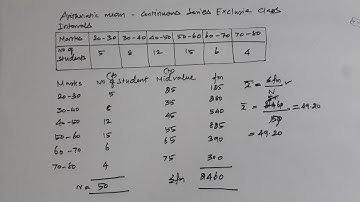 Arithmatic mean - Continuous Series Exclusive Class
Intervals
Marks 20-30 30-40 40-50 50-60 60-70 70-80
No of Students 5 8 12 15 6 4
(f) (m)
Marks No of Student Midvalue fm
20-30 5 25 125
30-40 8 35 280
40-50 12 45 540
50-60 15 55 825
60-70 6 65 390
70-80 4 75 300
N = 50 Σfm 2460
x̄ = Σfm / N
x̄ = 2460 / 50 = 49.20
= 49.20